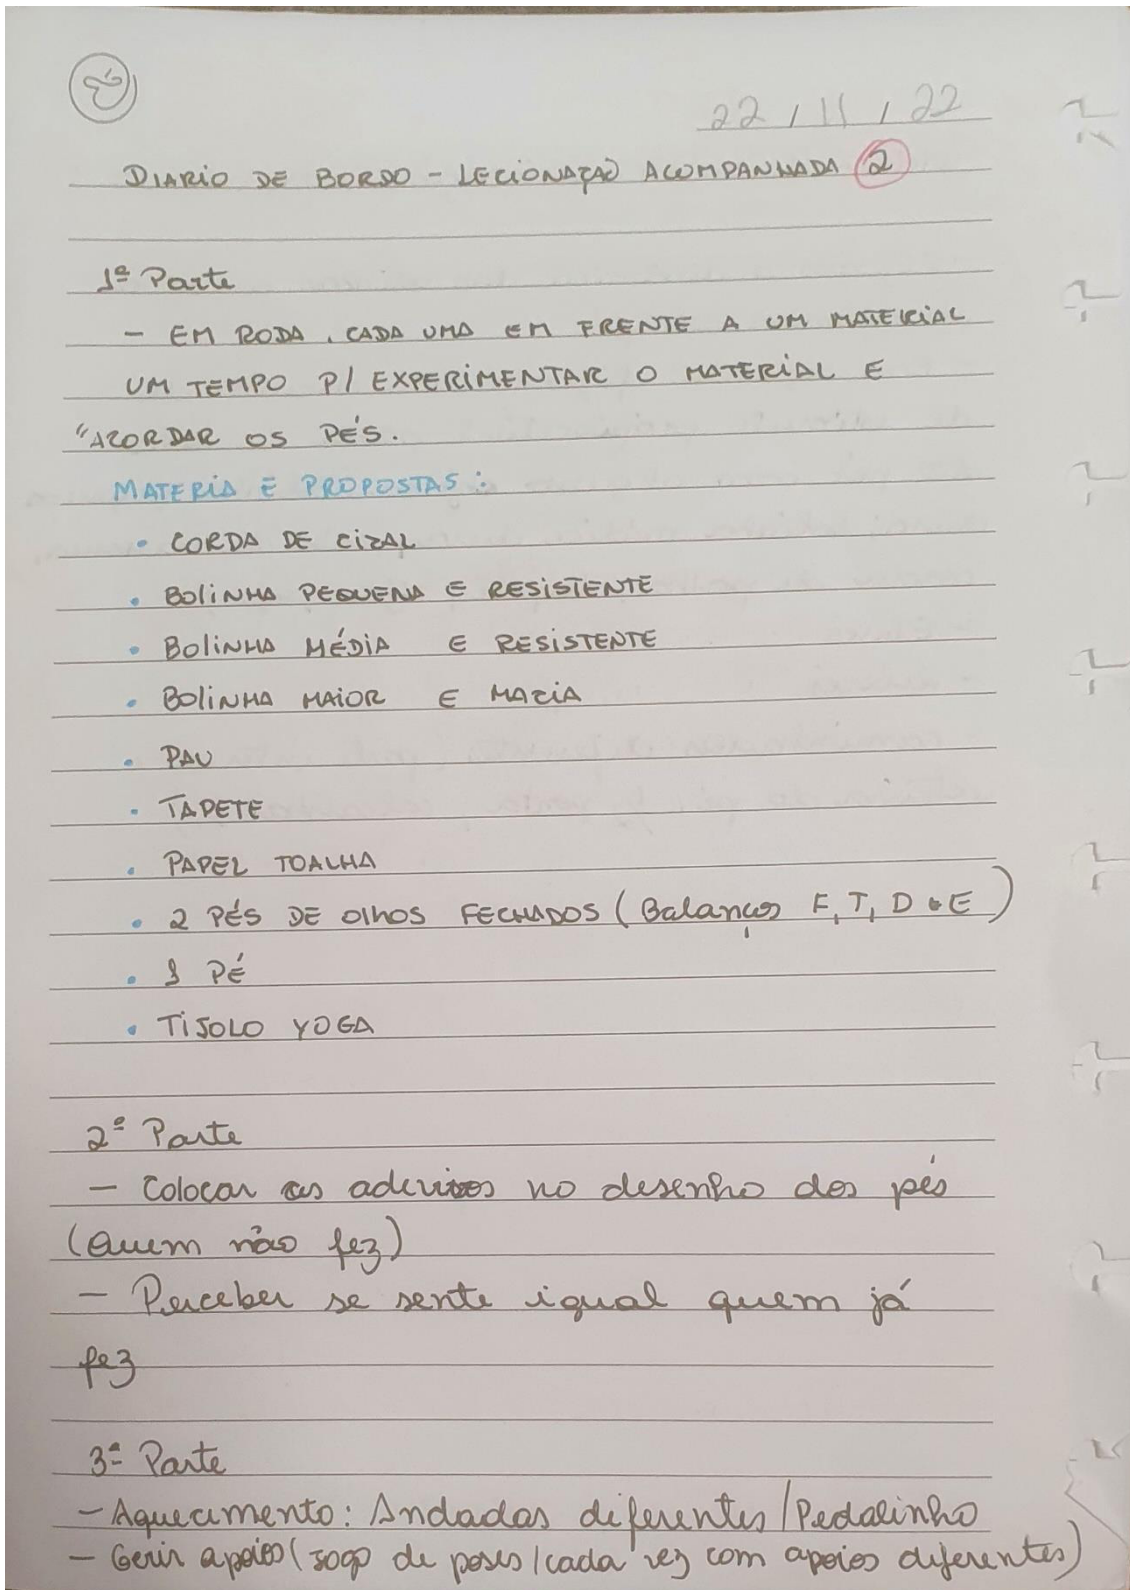 22 / 11 / 22
DIARIO DE BORDO - LECIONAÇÃO ACOMPANHADA 2
1ª Parte
- EM RODA, CADA UMA EM FRENTE A UM MATERIAL
UM TEMPO P/ EXPERIMENTAR O MATERIAL E
"ACORDAR OS PÉS.
MATERIA E PROPOSTAS:
• CORDA DE CIZAL
• BOLINHA PEQUENA E RESISTENTE
• BOLINHA MÉDIA E RESISTENTE
• BOLINHA MAIOR E MACIA
• PAU
• TAPETE
• PAPEL TOALHA
• 2 PÉS DE OLHOS FECHADOS (Balanços F, T, D e E)
• 1 PÉ
• TIJOLO YOGA
2ª Parte
- Colocar os adesivos no desenho dos pés
(Quem não fez)
- Perceber se sente igual quem já
fez
3ª Parte
- Aquecimento: Andadas diferentes / Pedalinho
- Gerir apoios (jogo de poses / cada vez com apoios diferentes)